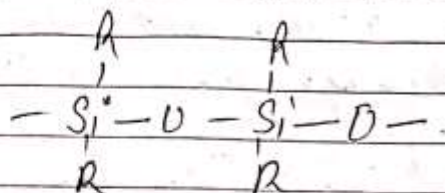 R R
- Si - O - Si - O -
R R